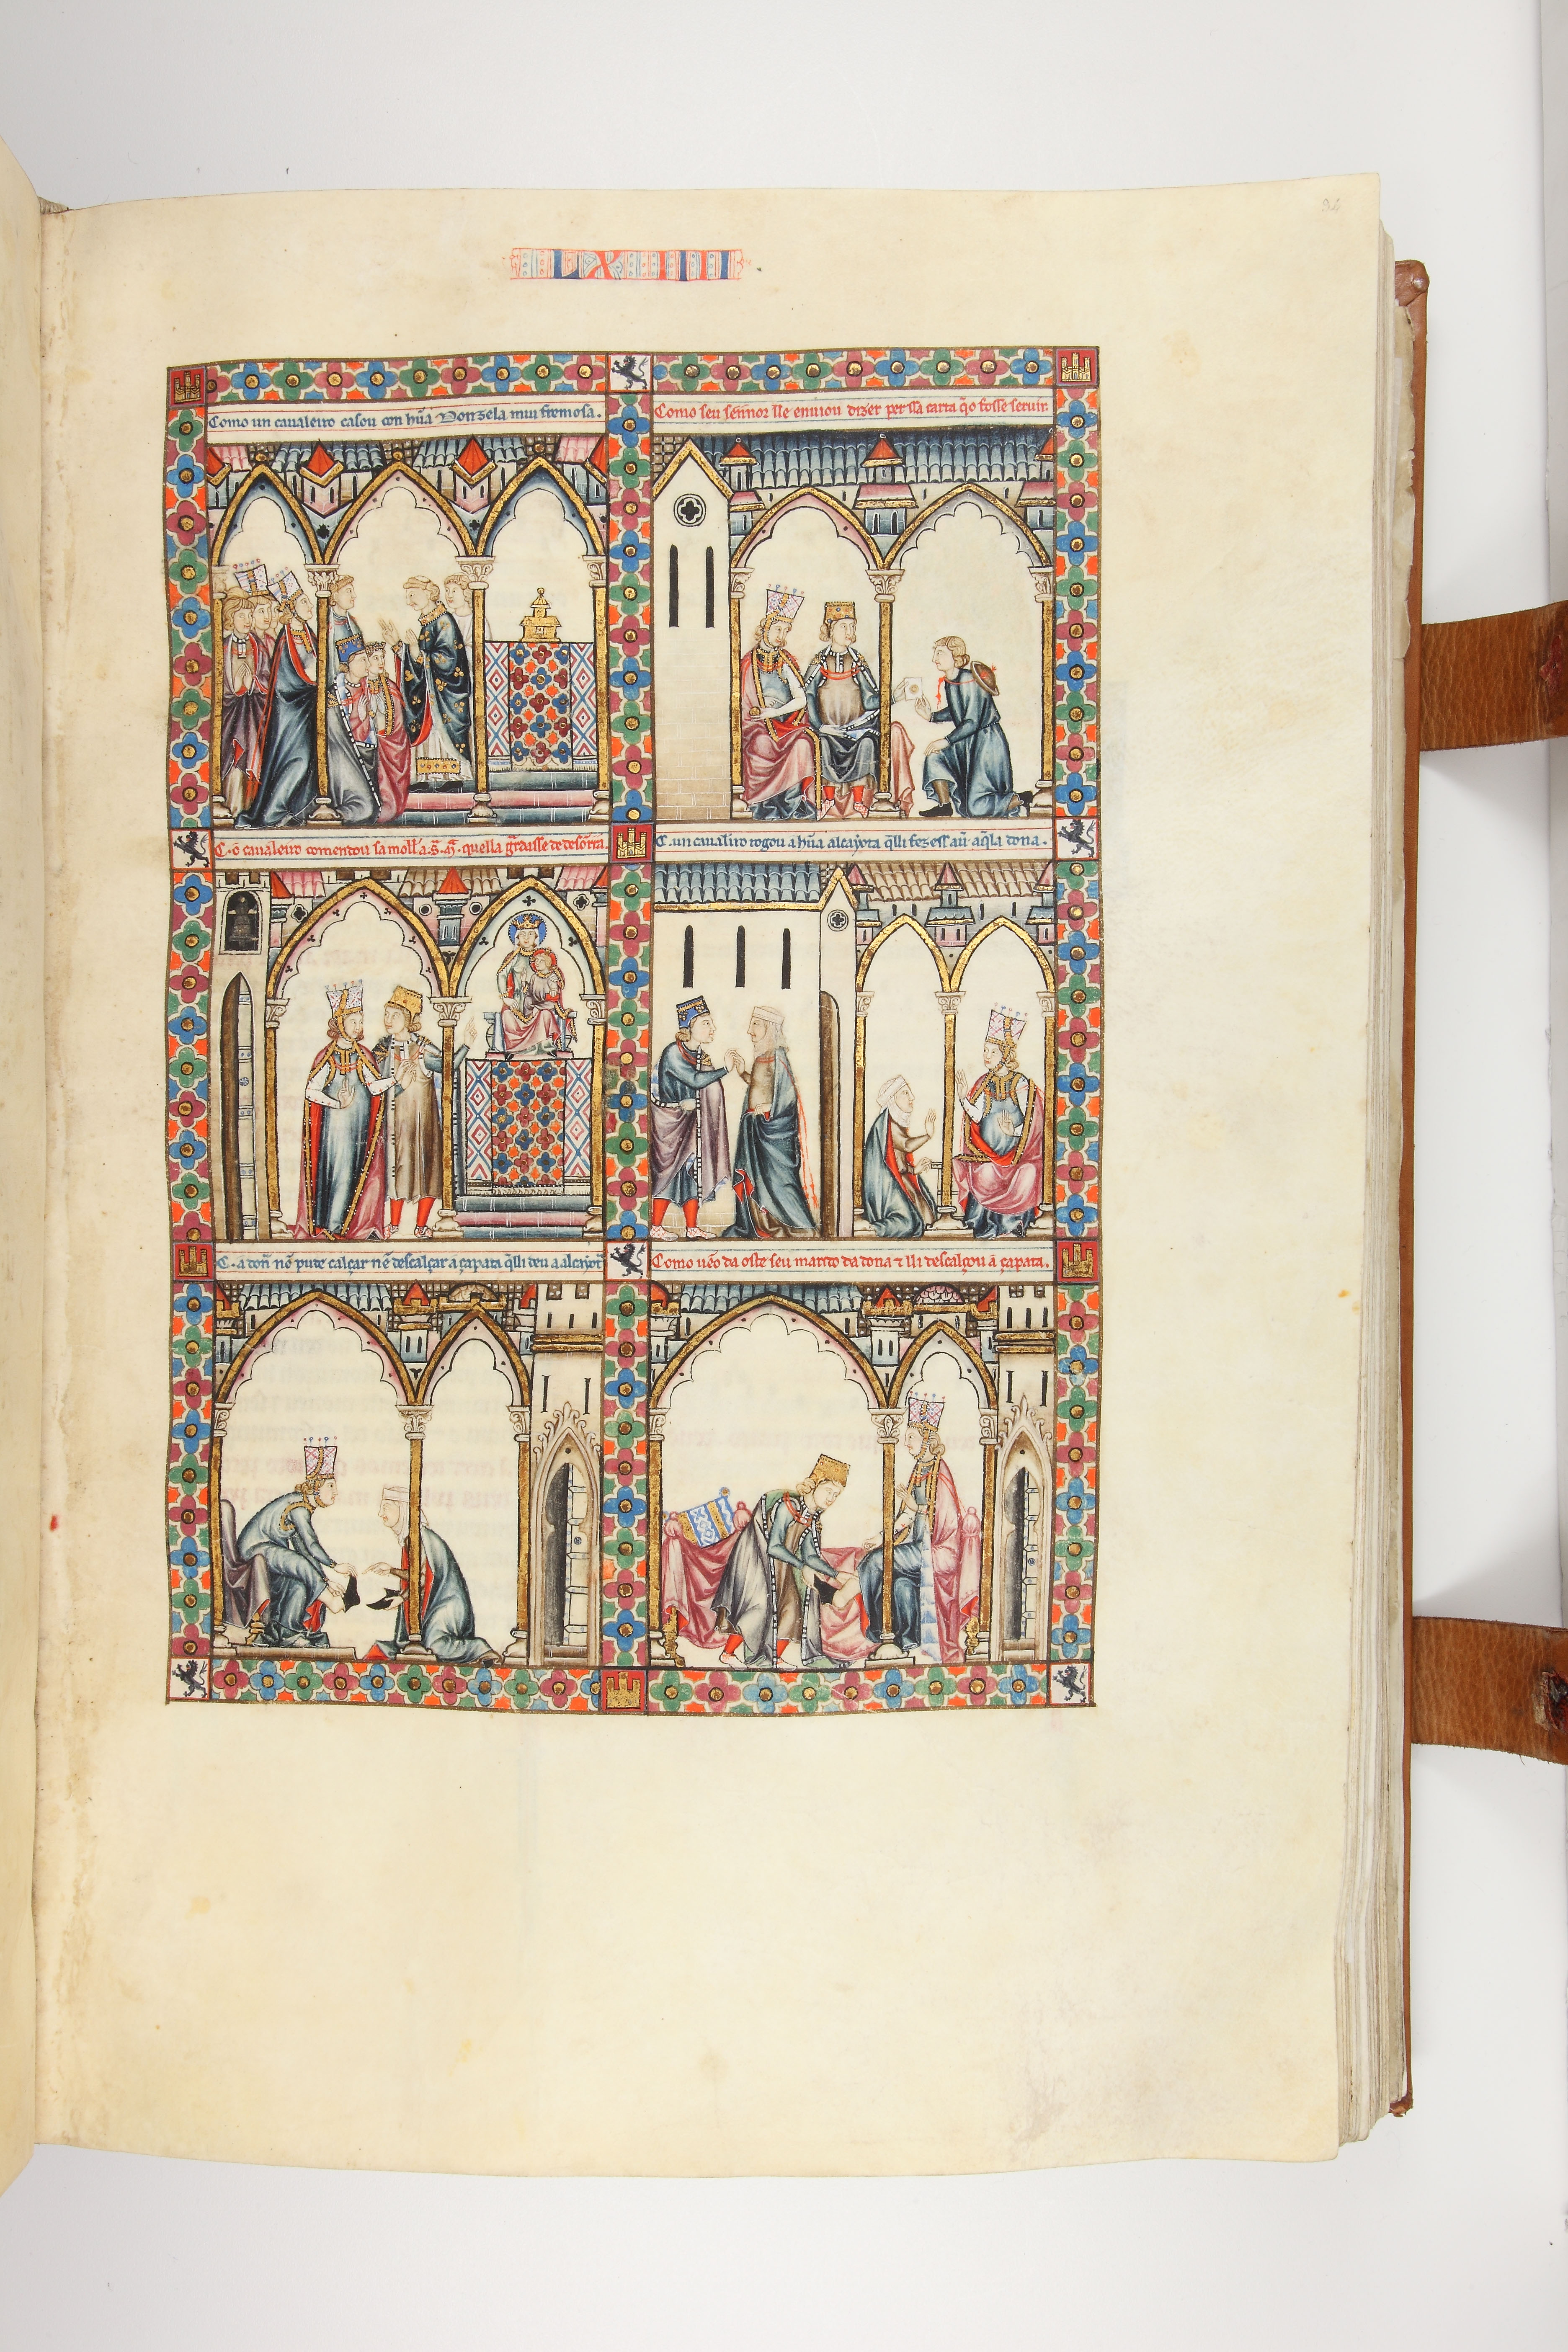 94
LXIIII
Como un cavaleiro casou con hũa Donzela mui fremosa.
Como seu sennor lle enviou dizer per ssa carta q̃o fosse servir.
C. o cavaleiro comendou sa moll' a. S. M. quella g̃rdasse de desõrra.
C. un cavaliro rogou a hũa alcayota q̃lli fezess' au̅ aq̃la dona.
C. a don̅ nõ pude calçar nẽ descalçar a çapata q̃lli deu a alcayot'
Como vẽo da oste seu marito da dona ⁊ lli descalçou a çapata.